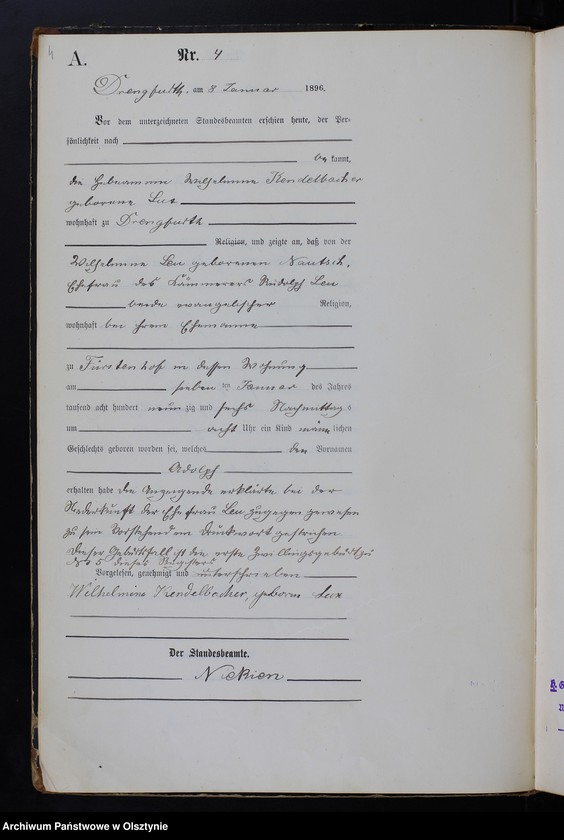 4
A.
Nr. 4
Drengfurth, am 8 Januar 1896.
Vor dem unterzeichneten Standesbeamten erschien heute, der Per-
sönlichkeit nach
be kannt,
die Hebeamme Wilhelmine Kendelbacher
geborene Lux
wohnhaft zu Drengfurth
Religion, und zeigte an, daß von der
Wilhelmine Leu geborenen Nautsch,
Ehefrau des Kämmerers Rudolph Leu
beide evangelischer Religion,
wohnhaft bei ihrem Ehemanne
zu Fürstenhof in dessen Wohnung
am sieben ten Januar des Jahres
tausend acht hundert neun zig und sechs Nachmittag s
um acht Uhr ein Kind männ lichen
Geschlechts geboren worden sei, welches den Vornamen
Adolph
erhalten habe die Anzeigende erklärte bei der
Niederkunft der Ehefrau Leu zugegen gewesen
zu sein Vorstehend ein Druckwort gestrichen
Dieser Geburtsfall ist die erste Zwillingsgeburt zu
No 5 dieses Registers
Vorgelesen, genehmigt und unterschrieben
Wilhelmine Kendelbacher, geborne Lux
Der Standesbeamte.
Archiwum Państwowe w Olsztynie